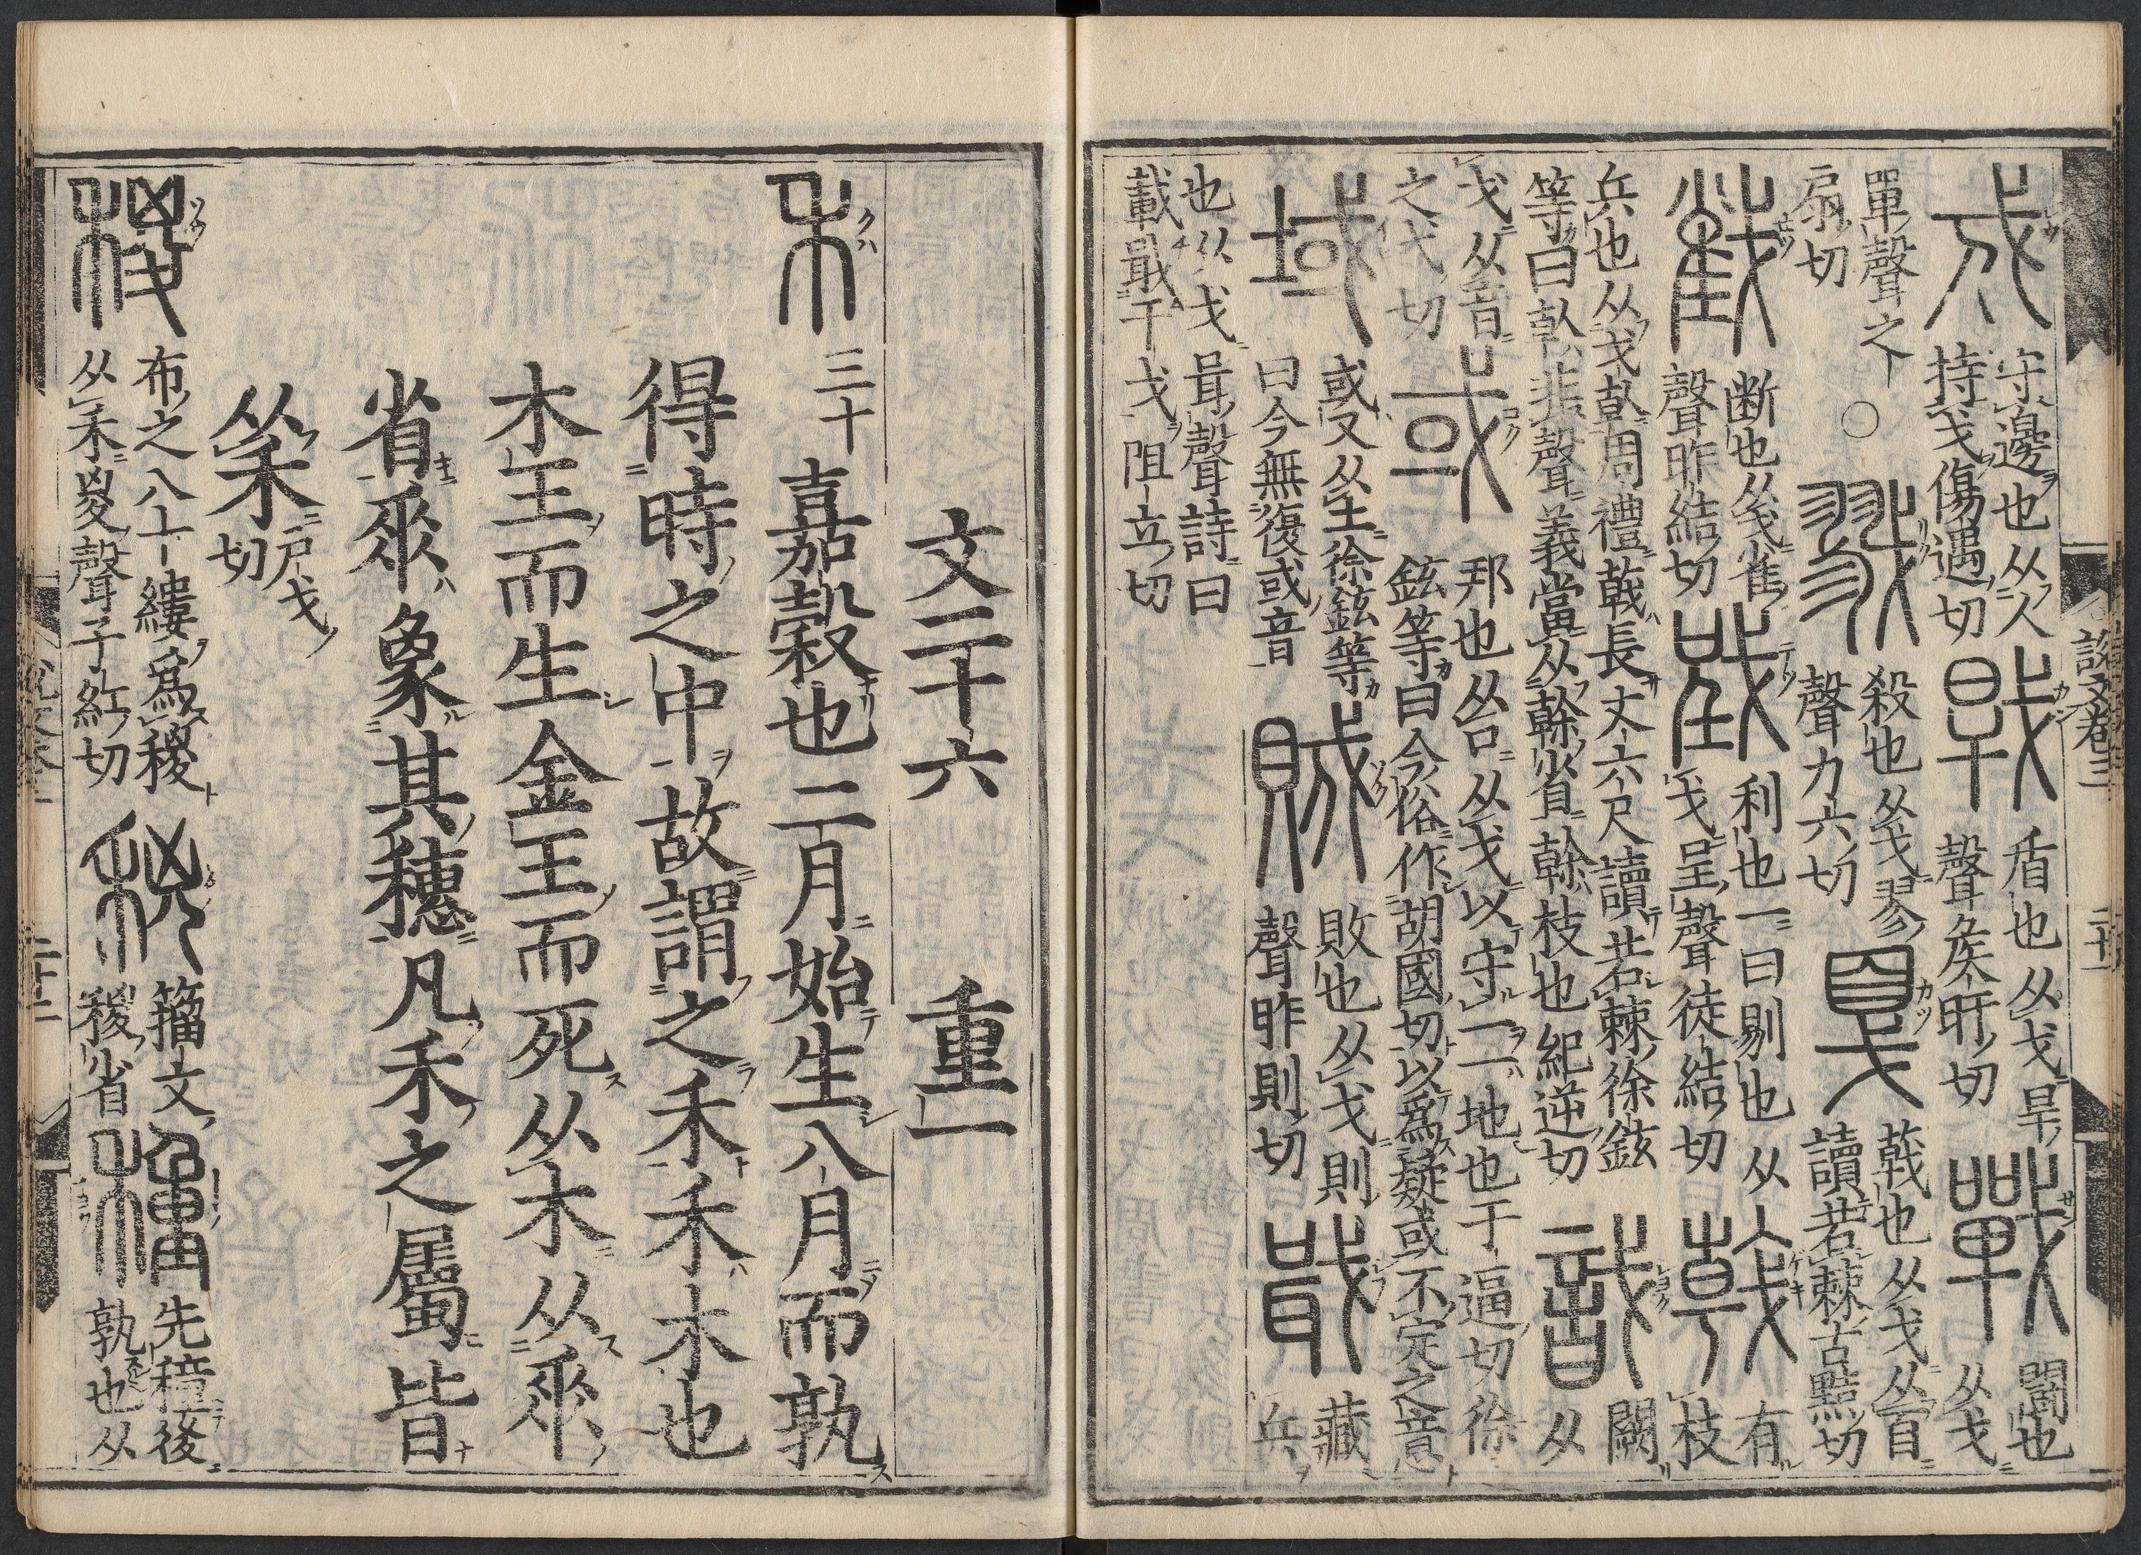 戍 守邊也从人
持戈傷遇切
戟 盾也从戈旱
聲矦旰切
戰 鬭也
从戈
單聲之
扇切
○
戮 殺也从戈翏
聲力六切
戛 戟也从戈从𦣻
讀若棘古黠切
截 断也从戈雀
聲昨結切
𢧜 利也一曰剔也从
戈呈聲徒結切
有
枝
兵也从戈倝周禮戟長丈六尺讀若棘徐鉉
等曰倝非聲義當从榦省榦枝也紀逆切
戠 闕
从
戈从音
之弋切
或 邦也从囗从戈以守一一地也于逼切徐
鉉等曰今俗作胡國切以爲疑或不定之意
域 或又从土徐鉉等
曰今無復或音
賊 敗也从戈則
聲昨則切
戢 藏
兵
也从戈咠聲詩曰
載戢干戈阻立切
說文卷三
文二十六 重一
禾 三十 嘉榖也二月始生八月而孰
得時之中故謂之禾禾木也
木王而生金王而死从木从𠂹
省𠂹象其穗凡禾之屬皆
从禾 戸戈
切
稯 布之八十縷爲稯
从禾㚇聲子紅切
籀文
稯省
穜 先穜後
孰也从